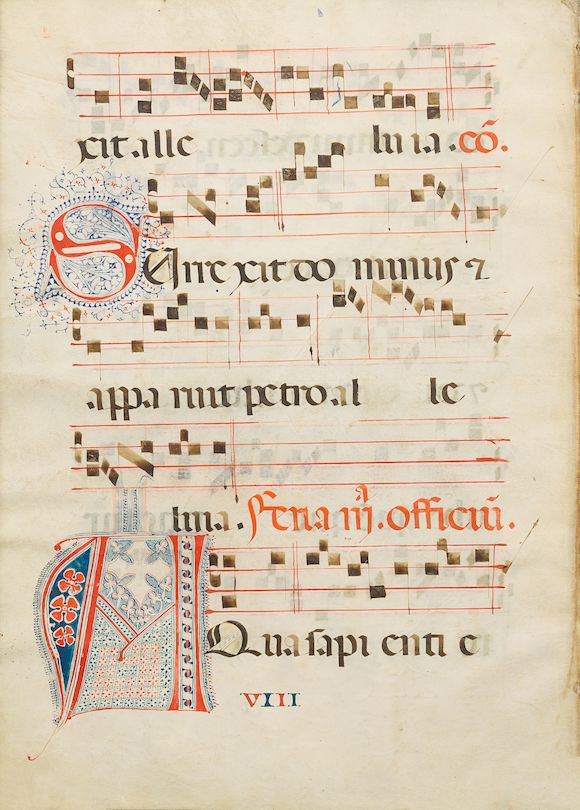 xit alle luia. cō.
Surre xit do minus ⁊
appa ruit petro al le
luia. Feria iijᵃ. officiū.
AQua sapi enti e
VIII